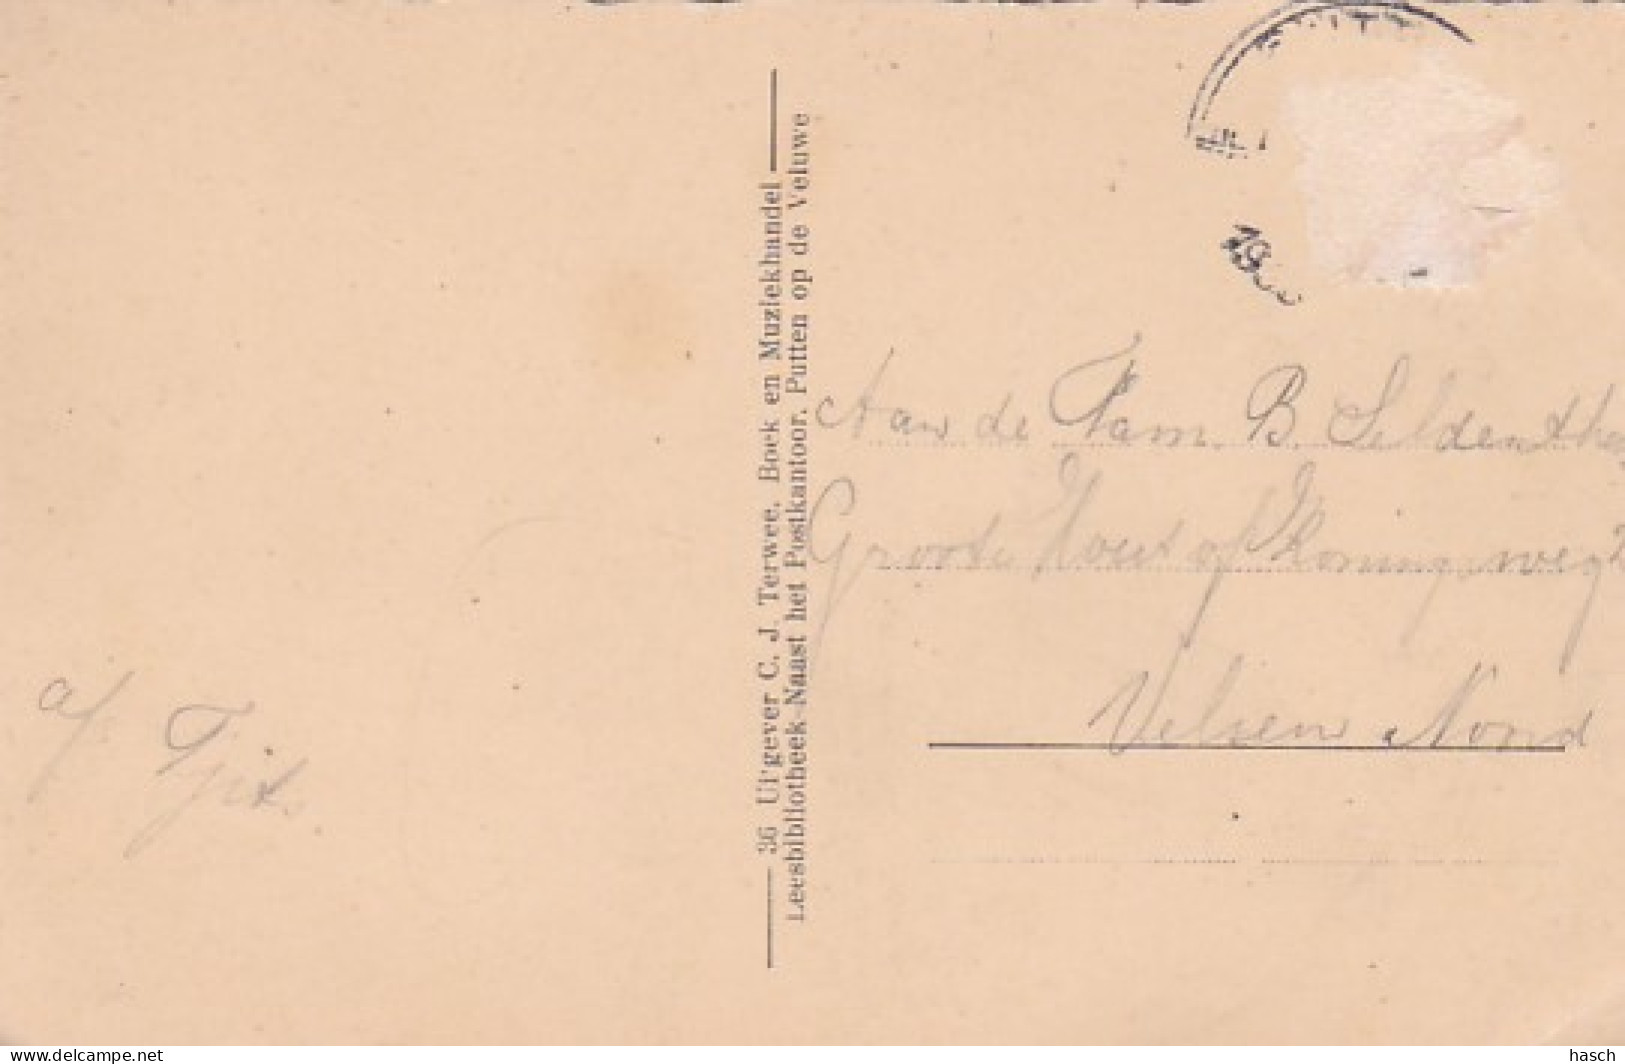 36 Uitgever C. J. Terwee, Boek en Muziekhandel
Leesbibliotheek-Naast het Postkantoor. Putten op de Veluwe
Aan de Fam. B. Seldenthu
Groote Hout of Koningsweg
Velsen Noord
a/
Tjit.
hasch
Delcampe.net